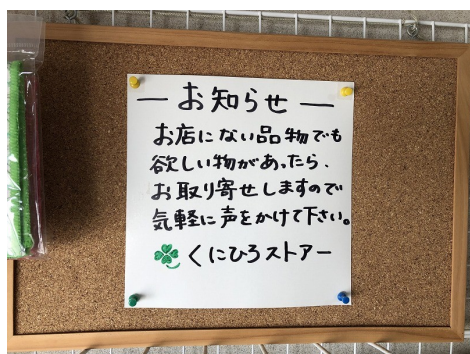 ― お知らせ ―
お店にない品物でも
欲しい物があったら、
お取り寄せしますので
気軽に声をかけて下さい。
くにひろストアー